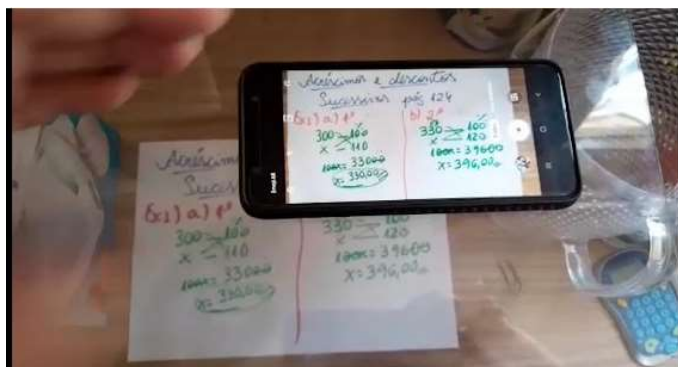 Acréscimos e descontos
Sucessivos pág 124
Ex1) a) 1º
300 100
x 110
100x = 33000
x = 330,00
b) 2º
330 100
x 120
100x = 39600
x = 396,00
Acréscim
Suces
Ex1) a) 1º
300 100
x 110
100x = 33000
x = 330,00
330 100
x 120
100x = 39600
x = 396,00